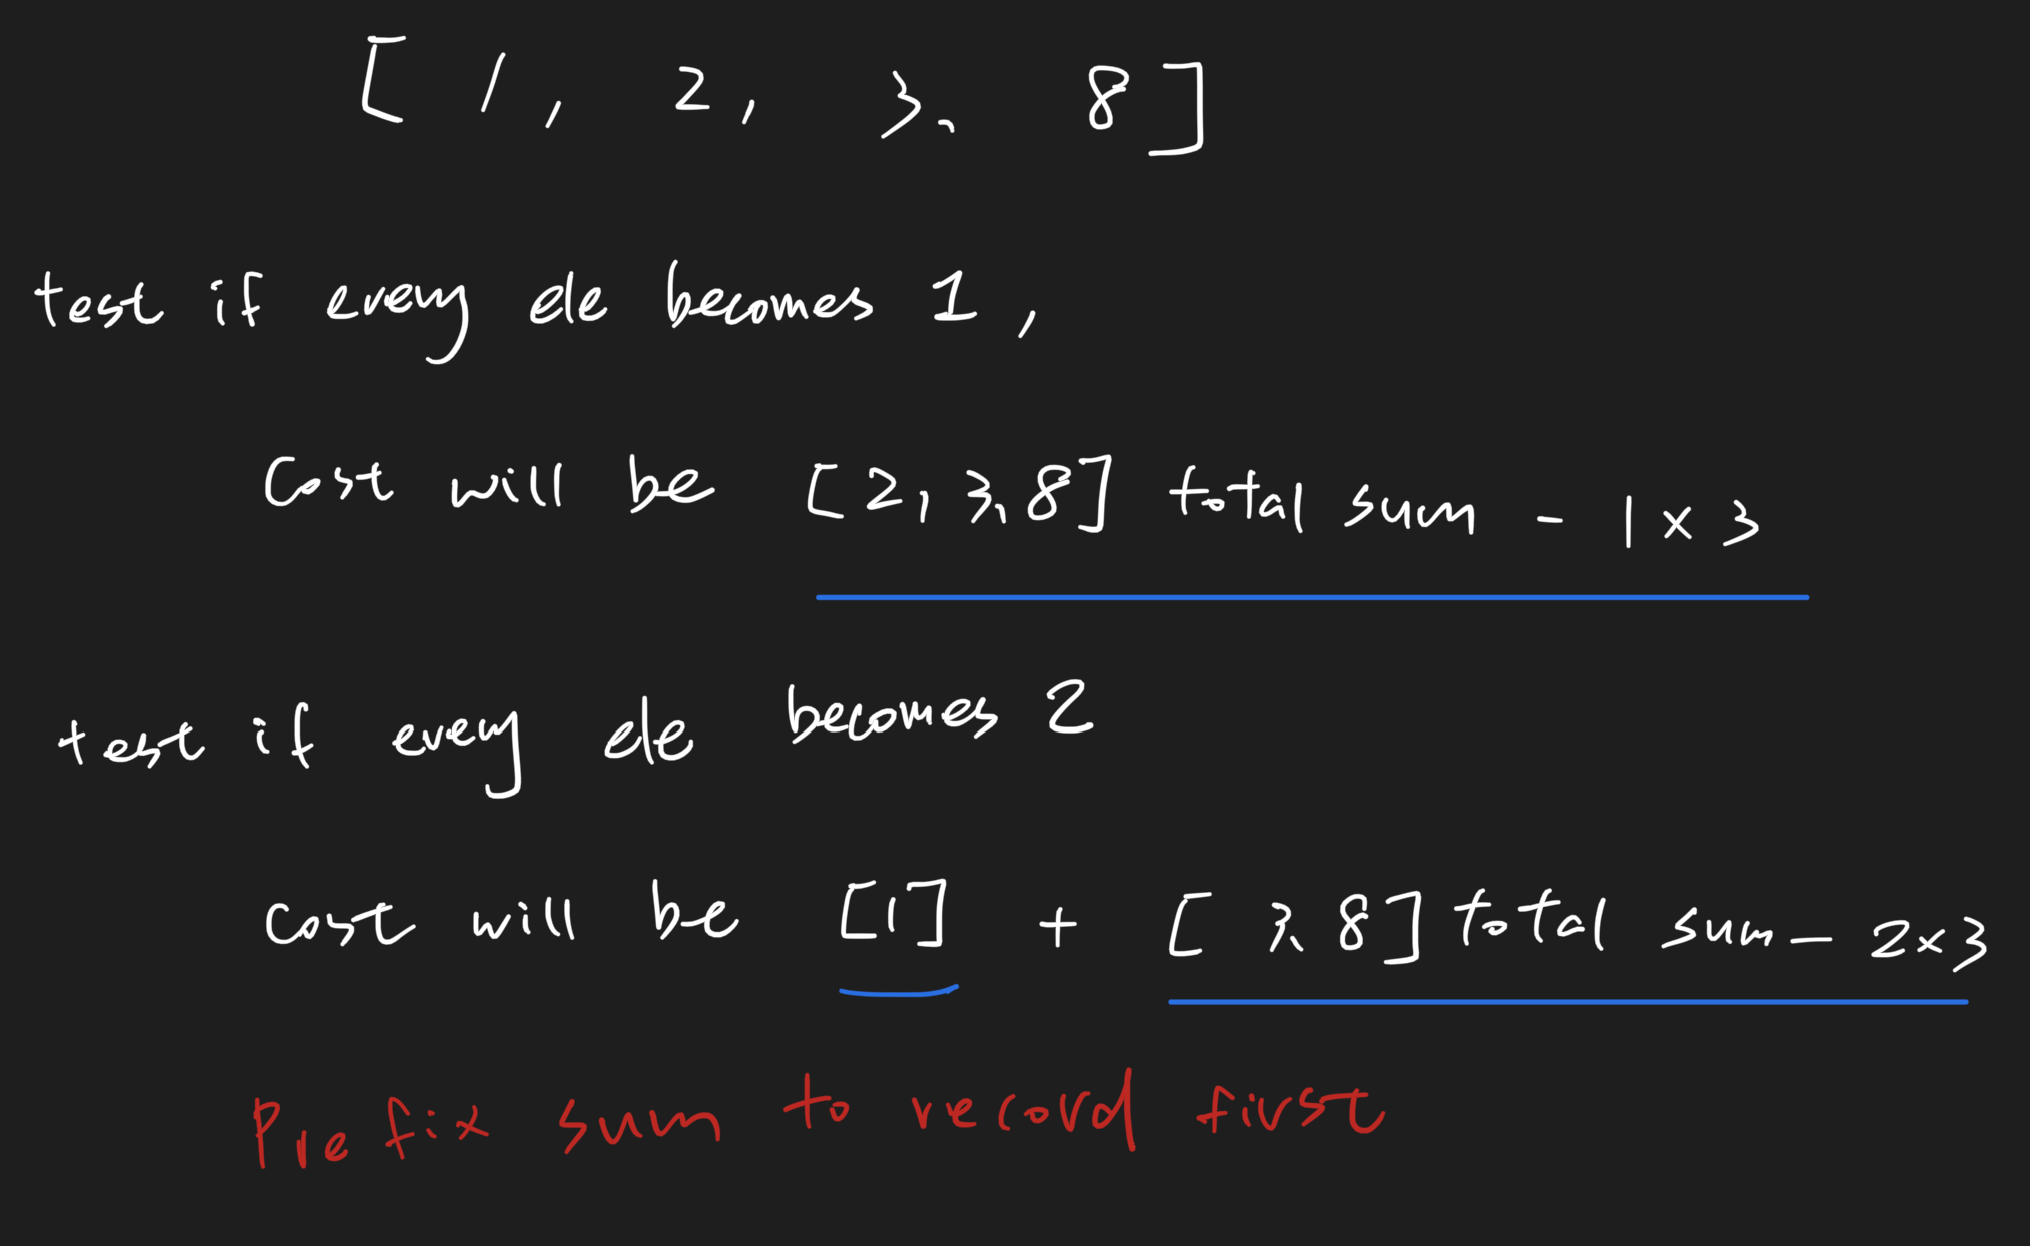 [ 1, 2, 3、 8 ]
test if every ele becomes 1,
Cost will be [2, 3、8] total sum - 1 × 3
test if every ele becomes 2
cost will be [1] + [ 3、8] total sum - 2×3
Prefix sum to record first